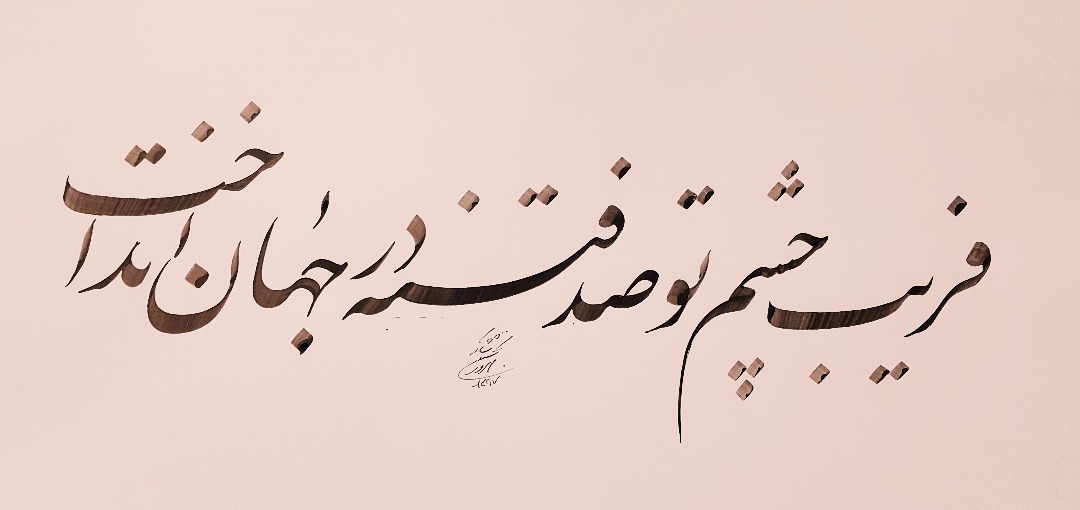 فریب چشم تو صد فتنه در جهان انداخت
۱۳۹۷